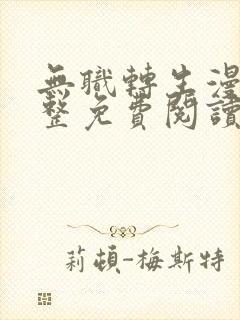 無職轉生漫
整免費閱讀
莉頓-梅斯特